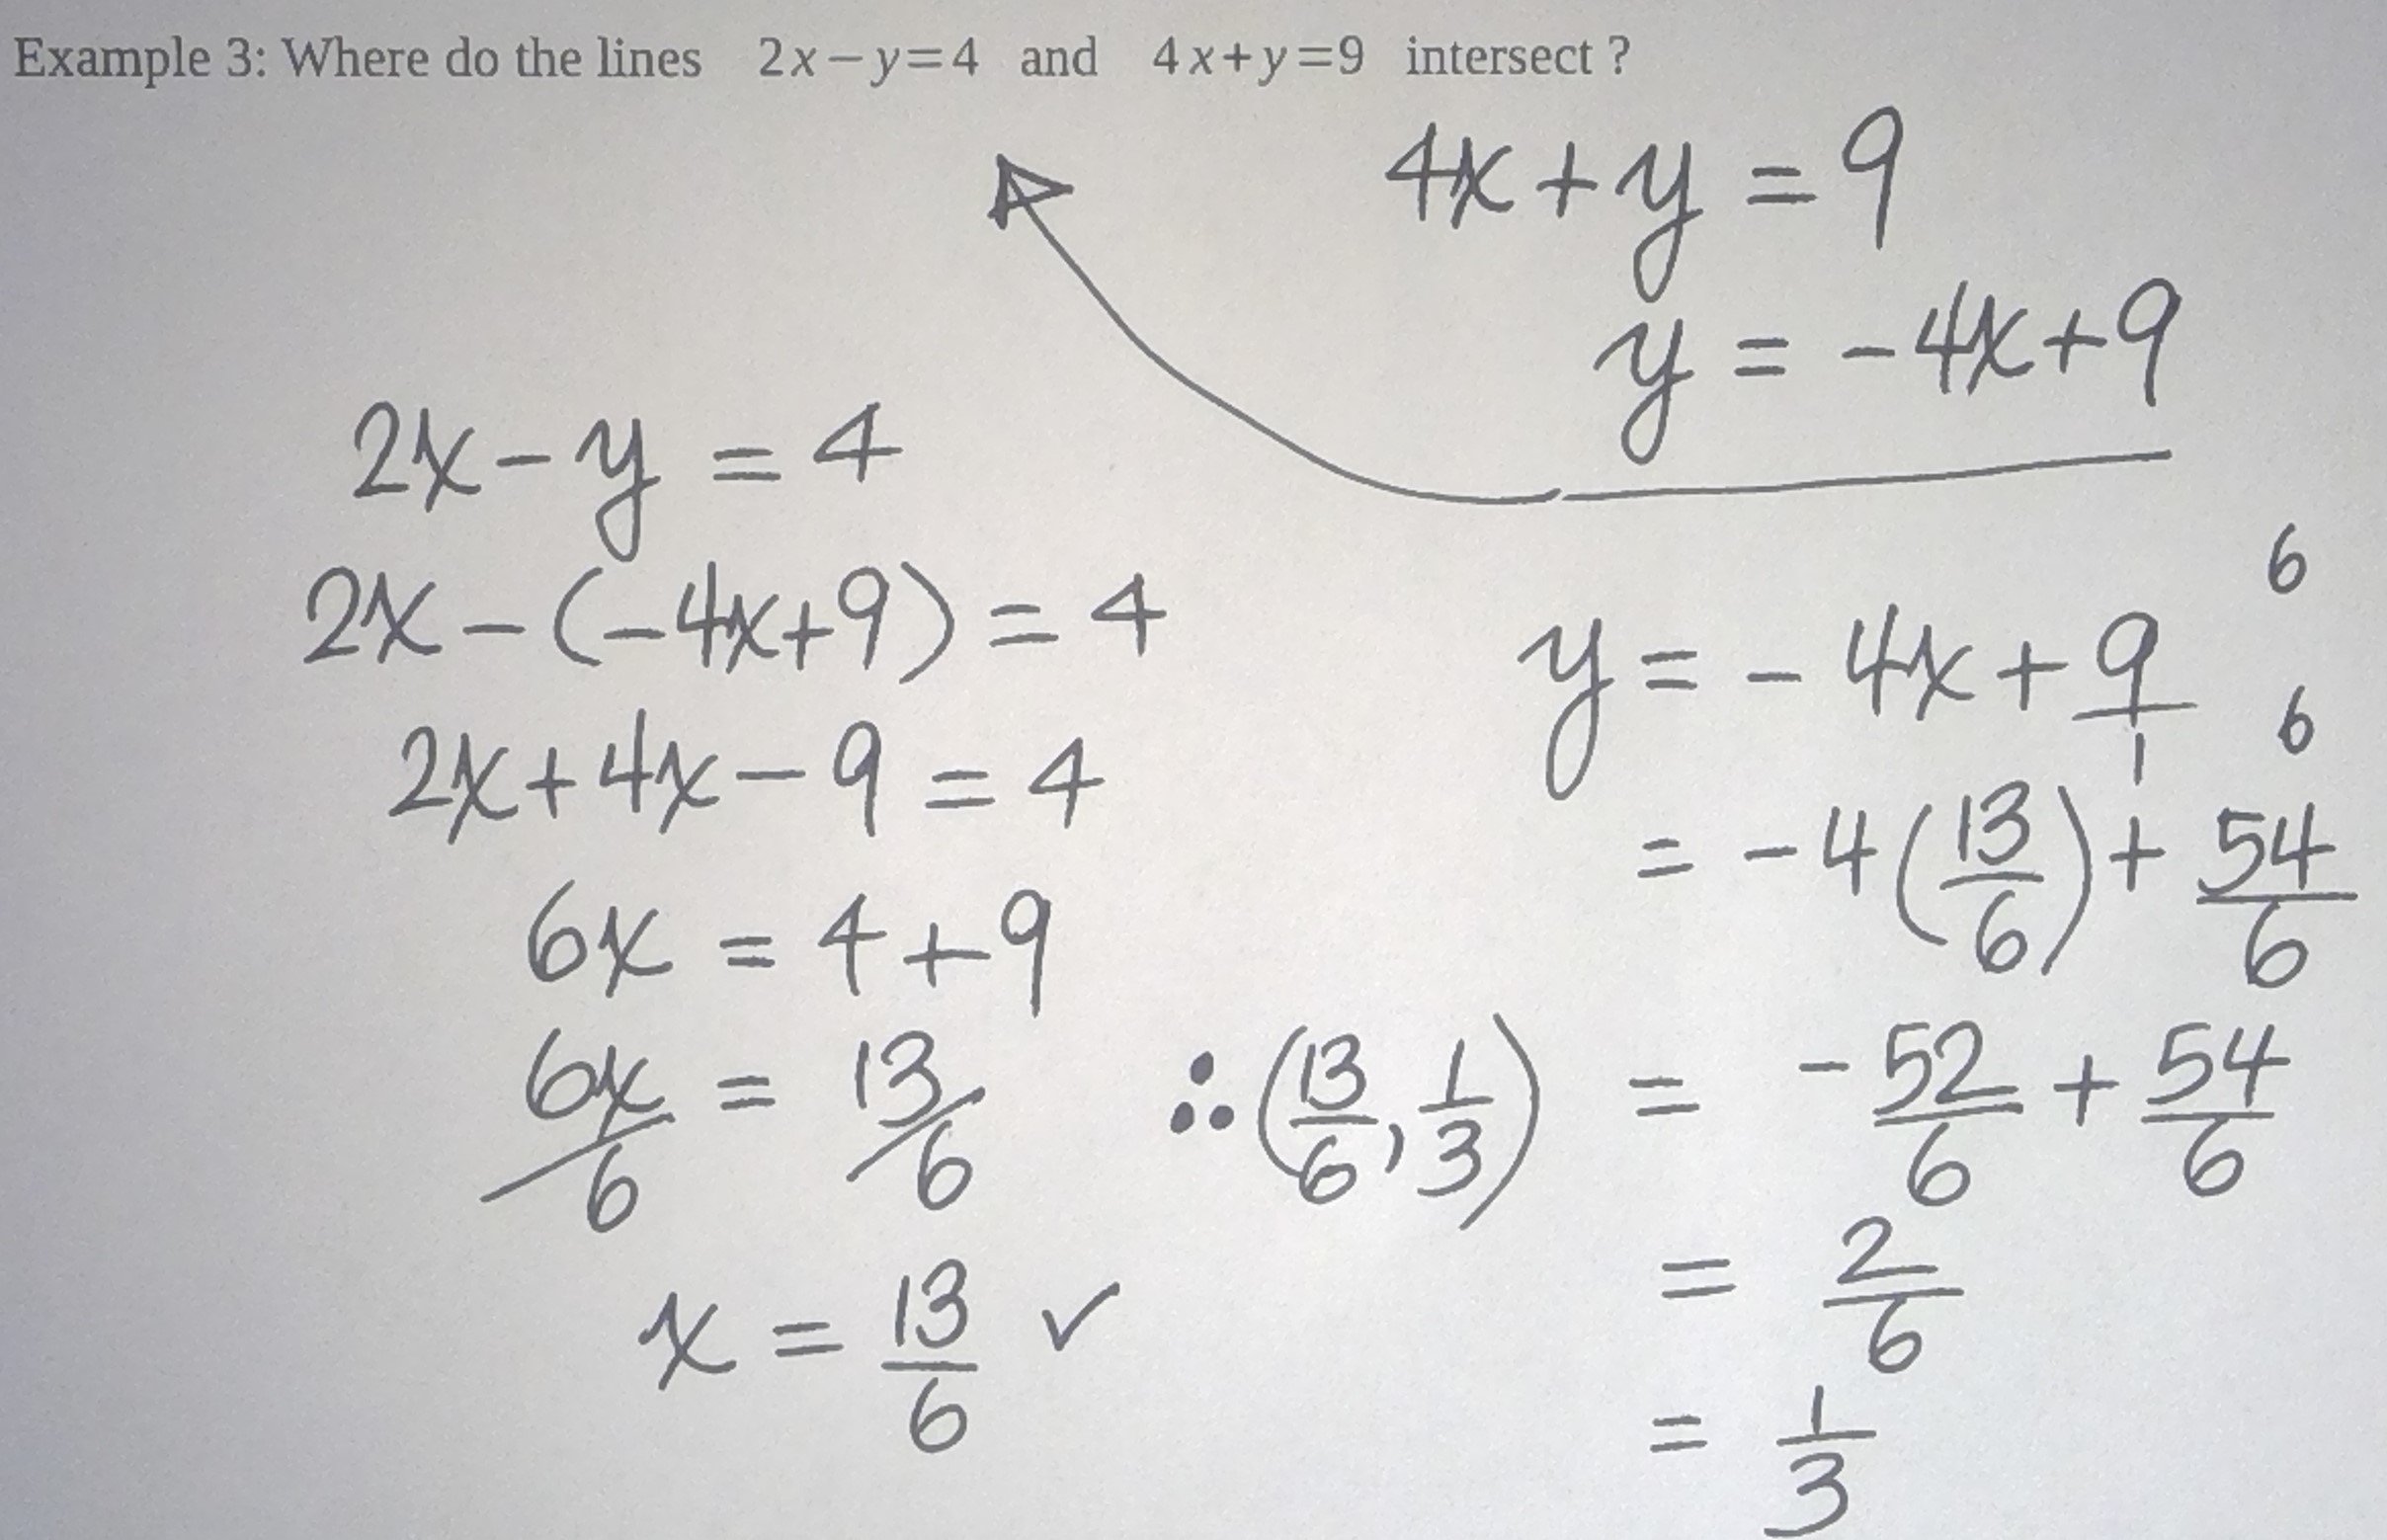 Example 3: Where do the lines 2x−y=4 and 4x+y=9 intersect ?
4x + y = 9
y = -4x+9
2x - y = 4
2x - (-4x+9) = 4
2x + 4x - 9 = 4
6x = 4 + 9
6x/6 = 13/6
x = 13/6 ✓
y = - 4x + 9/1 6 6
= -4(13/6) + 54/6
= -52/6 + 54/6
= 2/6
= 1/3
∴ (13/6, 1/3)